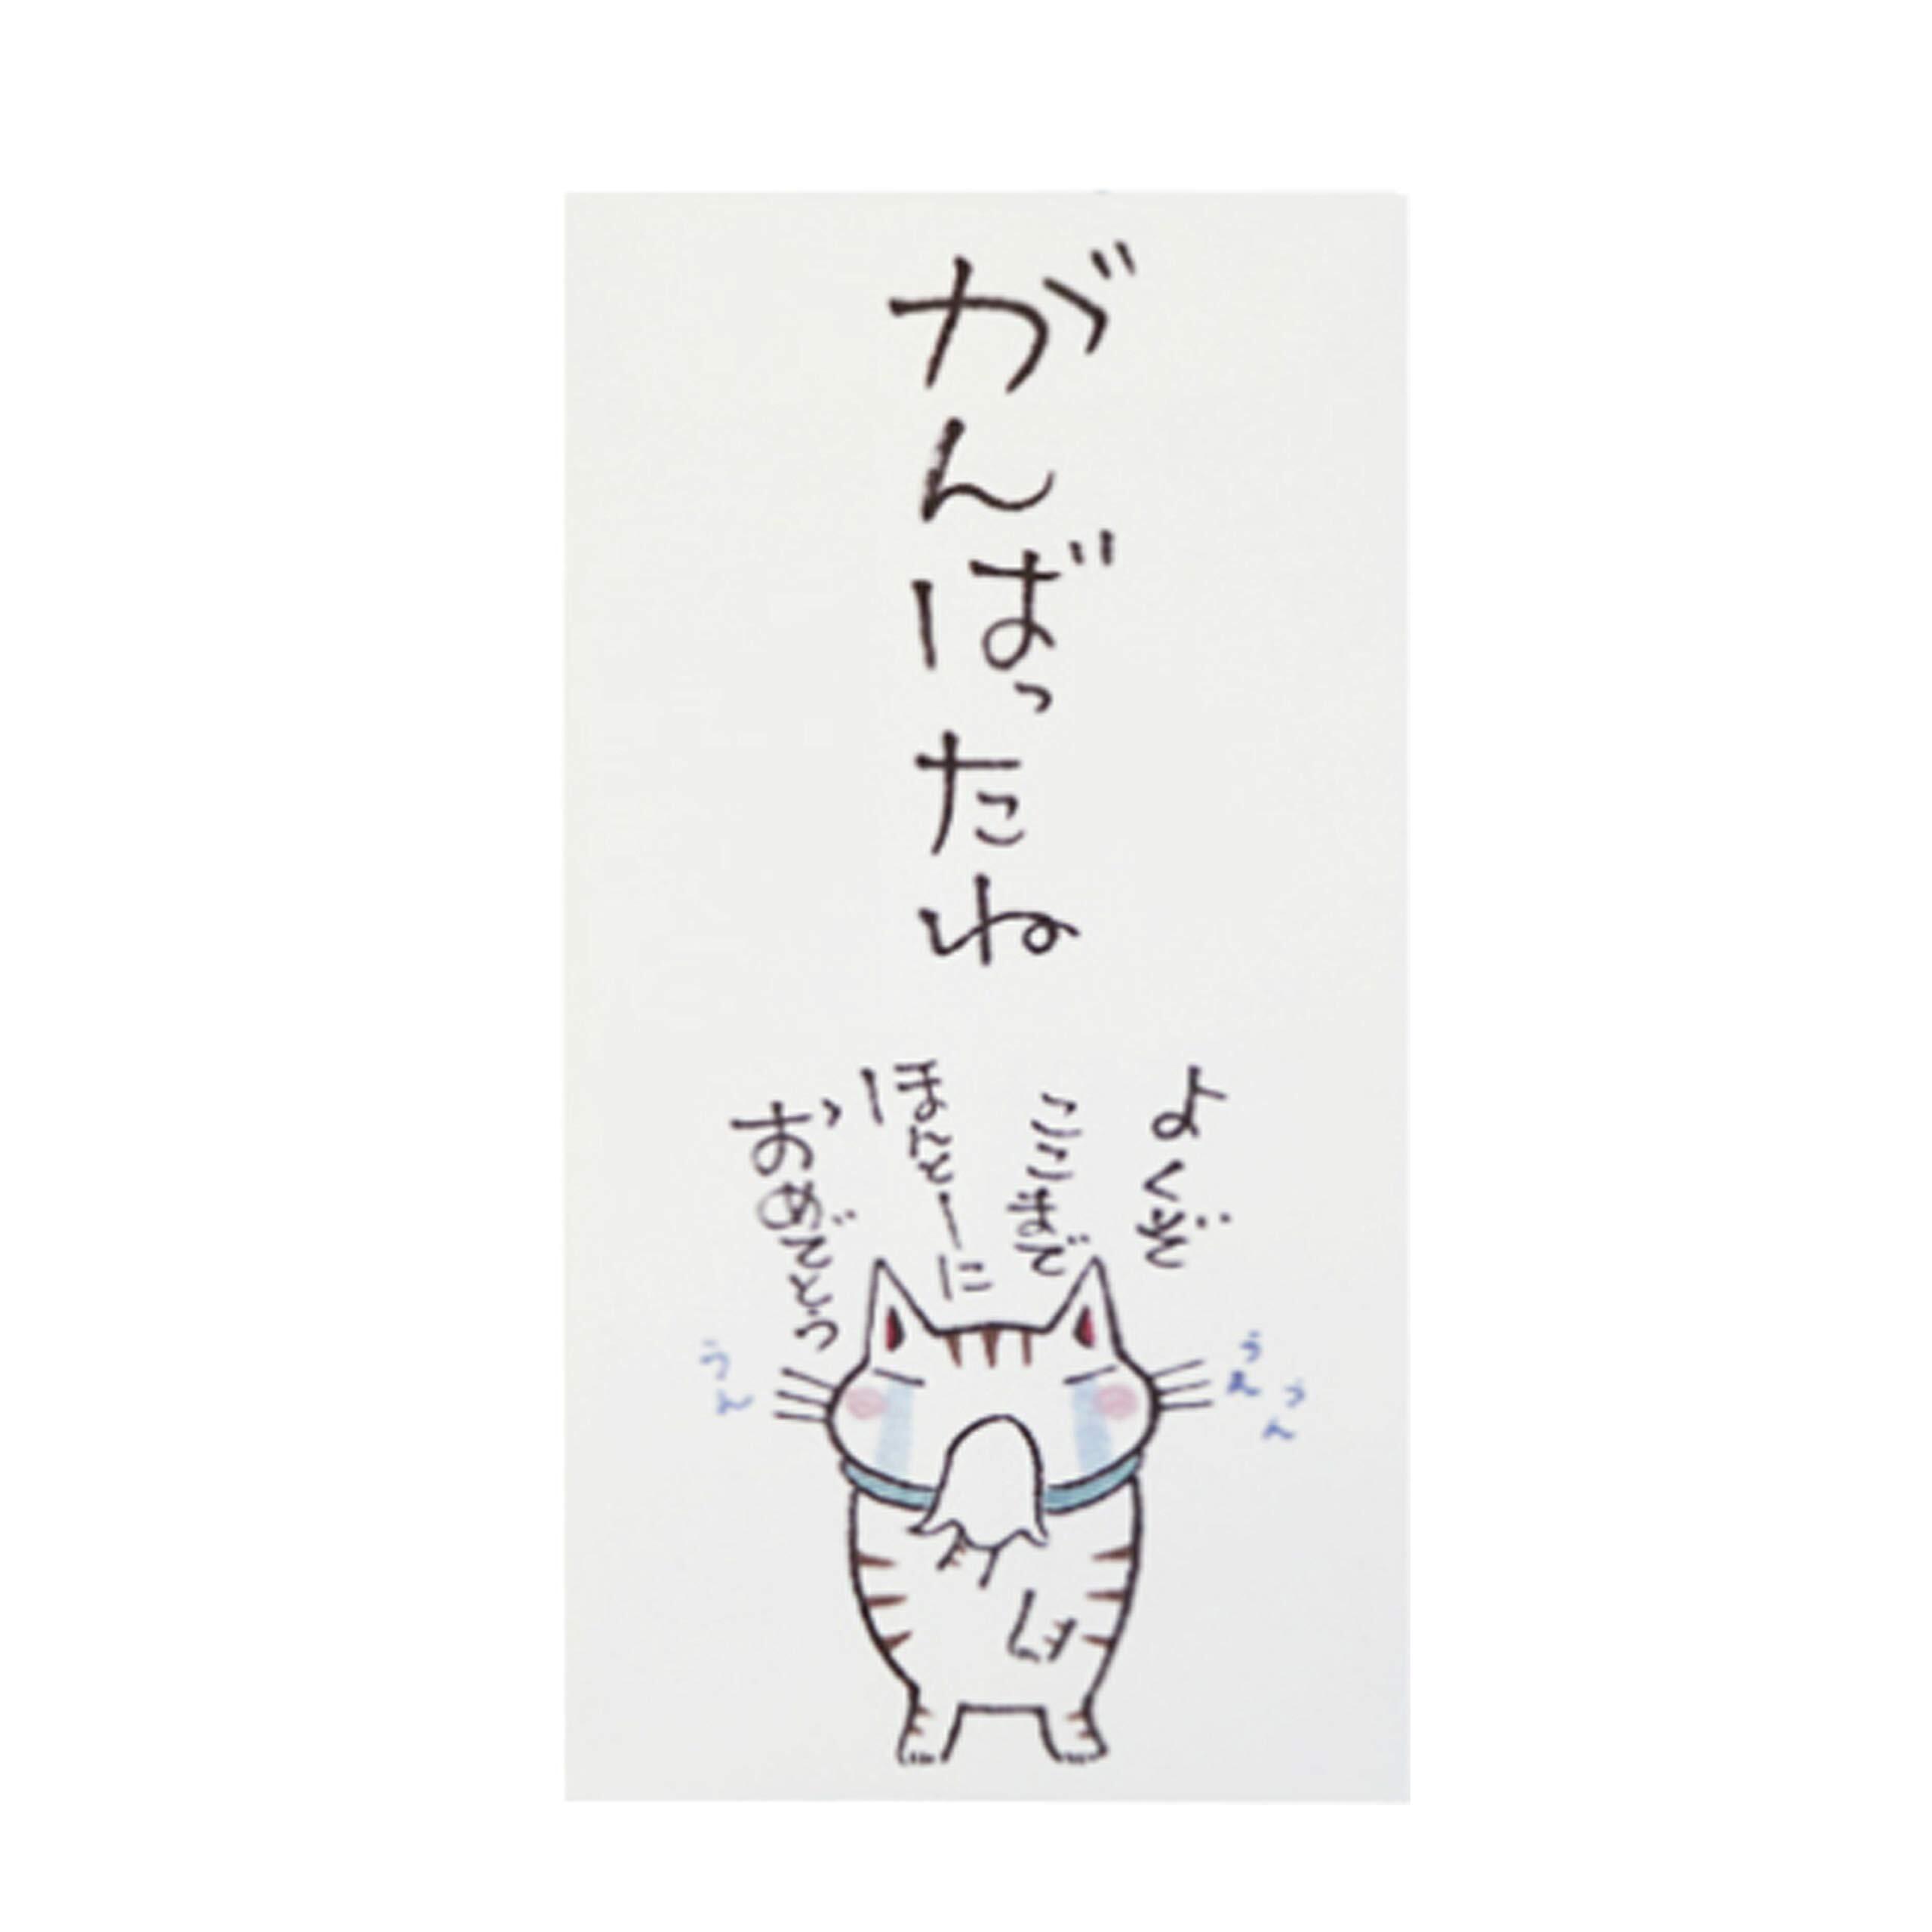 がんばったね
よくぞ
ここまで
ほんとーに
おめでとう
うん
うん
うん